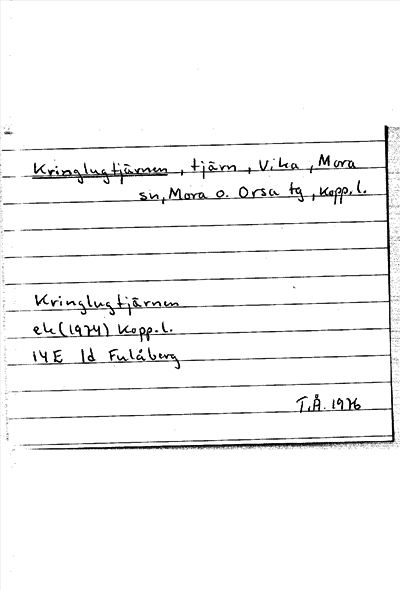 Kringlugtjärnen, tjärn, Vika, Mora
sn, Mora o. Orsa tg, Kopp.l.
Kringlugtjärnen
ek(1974) Kopp.l.
14E 1d Fulåberg
T.Å. 1976